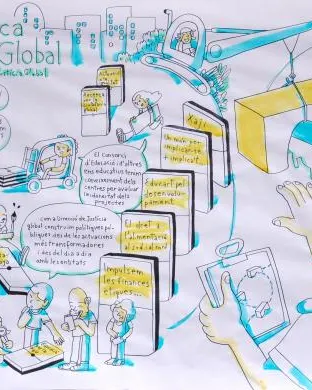 ca
Global
Justícia Global
El Consorci
d'Educació i d'altres
ens educatius tenim
coneixement dels
centres per avaluar
la idoneïtat dels
projectes
Com a Direcció de Justícia
global construïm polítiques pú-
bliques des de les actuacions
més transformadores
i des del dia a dia
amb les entitats
Xa
Un món per
implicar-se
Educar pel
desenvolu-
pament
El dret a
l'alimentació
Impulsem
les finances
ètiques...